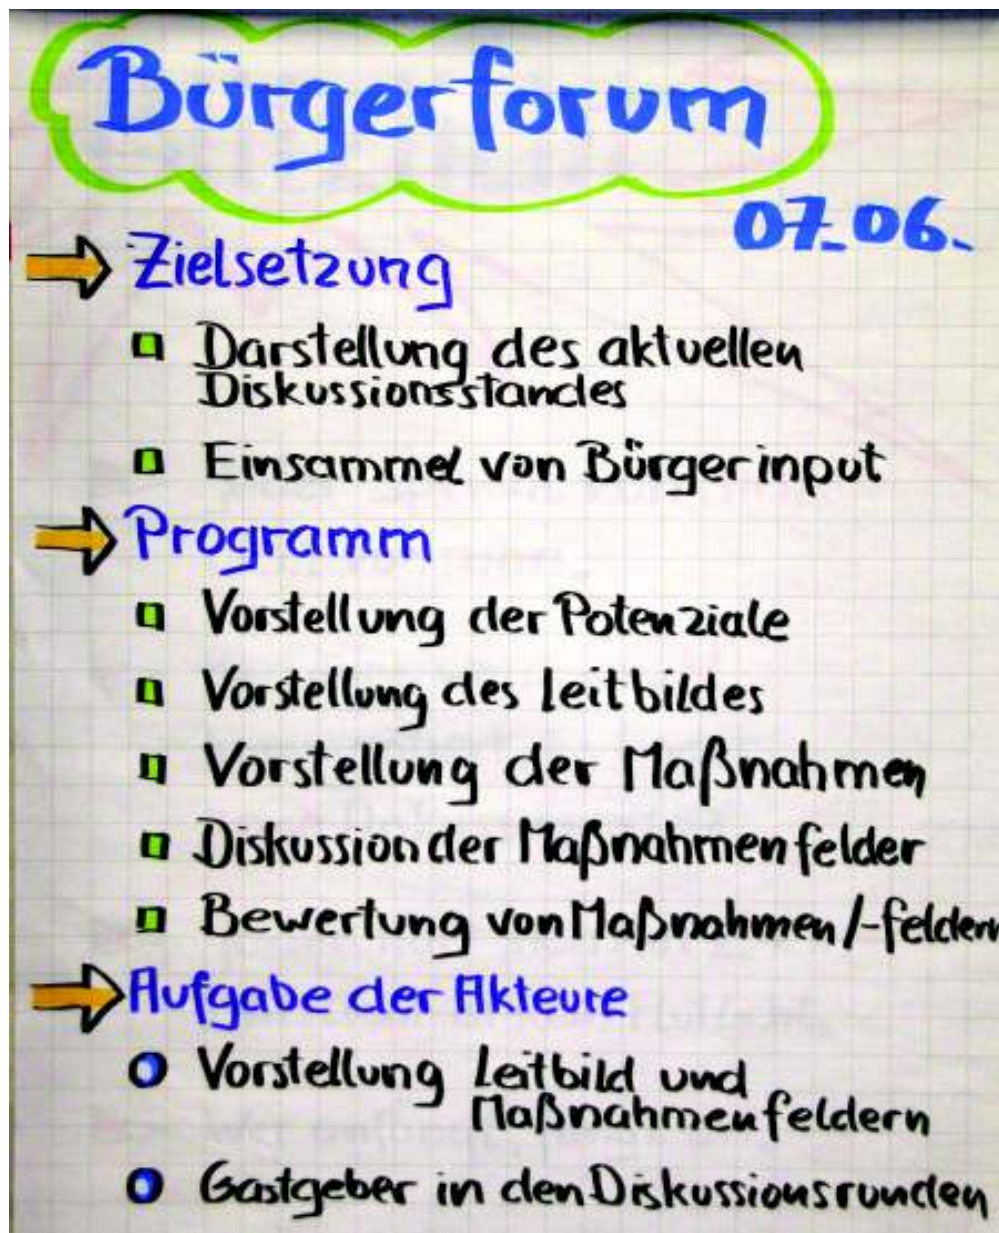 Bürgerforum
07.06.
Zielsetzung
Darstellung des aktuellen
Diskussionsstandes
Einsammel von Bürgerinput
Programm
Vorstellung der Potenziale
Vorstellung des Leitbildes
Vorstellung der Maßnahmen
Diskussion der Maßnahmenfelder
Bewertung von Maßnahmen/-feldern
Aufgabe der Akteure
Vorstellung Leitbild und
Maßnahmenfeldern
Gastgeber in den Diskussionsrunden